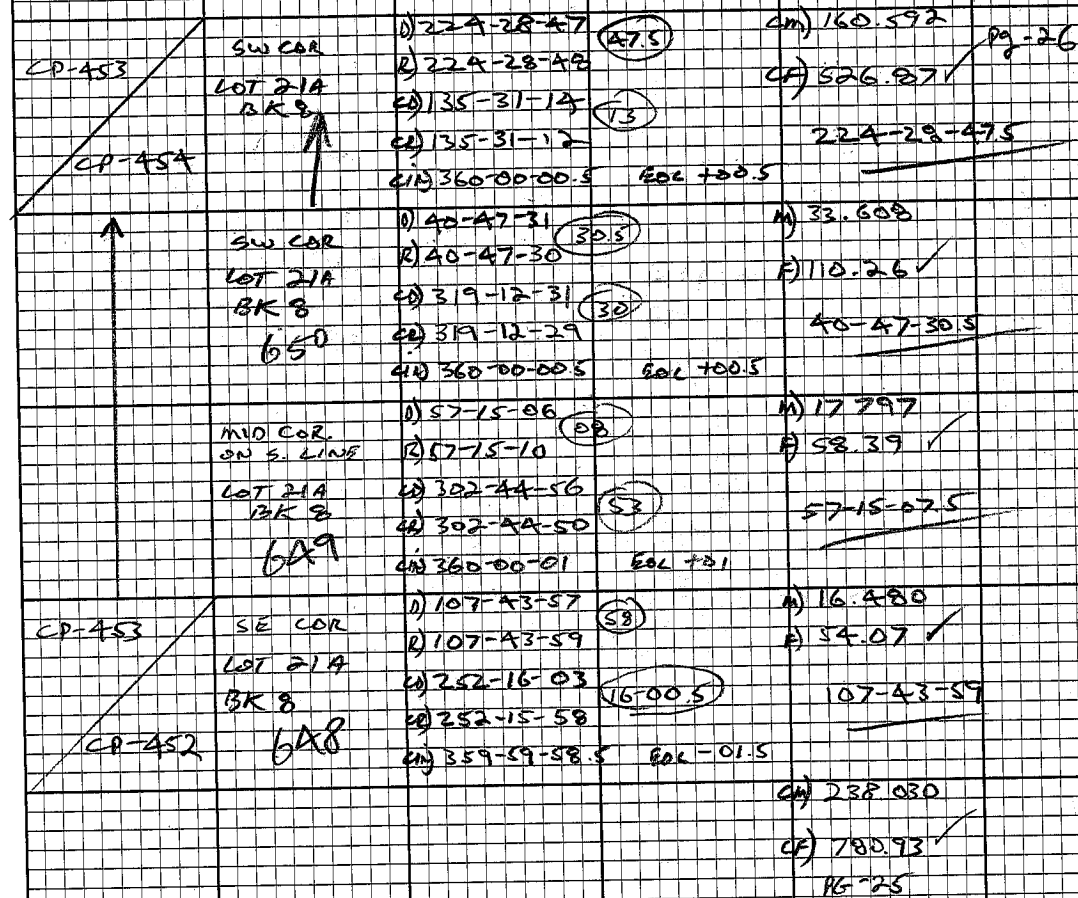 CP-453
CP-454
SW COR
LOT 21A
BK 8
D) 224-28-47
47.5
R) 224-28-48
CD) 135-31-14
13
CR) 135-31-12
360-00-00.5 EOC +00.5
CM) 160.592
CF) 526.87 ✓ Pg-26
224-28-47.5
SW COR
LOT 21A
BK 8
650
D) 40-47-31
30.5
R) 40-47-30
CD) 319-12-31
30
CR) 319-12-29
360-00-00.5 EOC +00.5
M) 33.608
F) 110.26 ✓
40-47-30.5
MID COR.
ON S. LINE
LOT 21A
BK 8
649
D) 57-15-06
08
R) 57-15-10
CD) 302-44-56
53
CR) 302-44-50
360-00-01 EOC +01
M) 17 797
F) 58.39 ✓
57-15-07.5
CP-453
CP-452
SE COR
LOT 21A
BK 8
648
D) 107-43-57
58
R) 107-43-59
CD) 252-16-03
16-00.5
CR) 252-15-58
359-59-58.5 EOC -01.5
M) 16.480
F) 54.07 ✓
107-43-59
CM) 238.030
CF) 780.93 ✓
PG-25